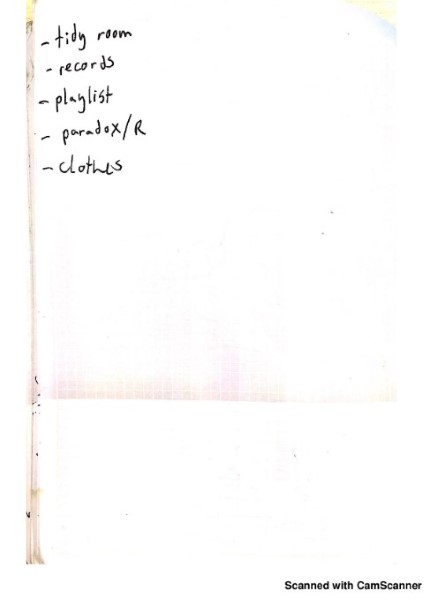 - tidy room
- records
- playlist
- paradox/R
- clothes
Scanned with CamScanner